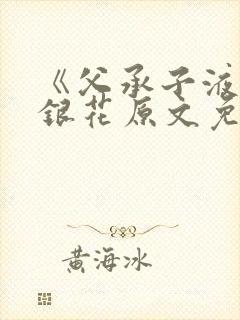 《父承子液
銀花原文免
黄海冰